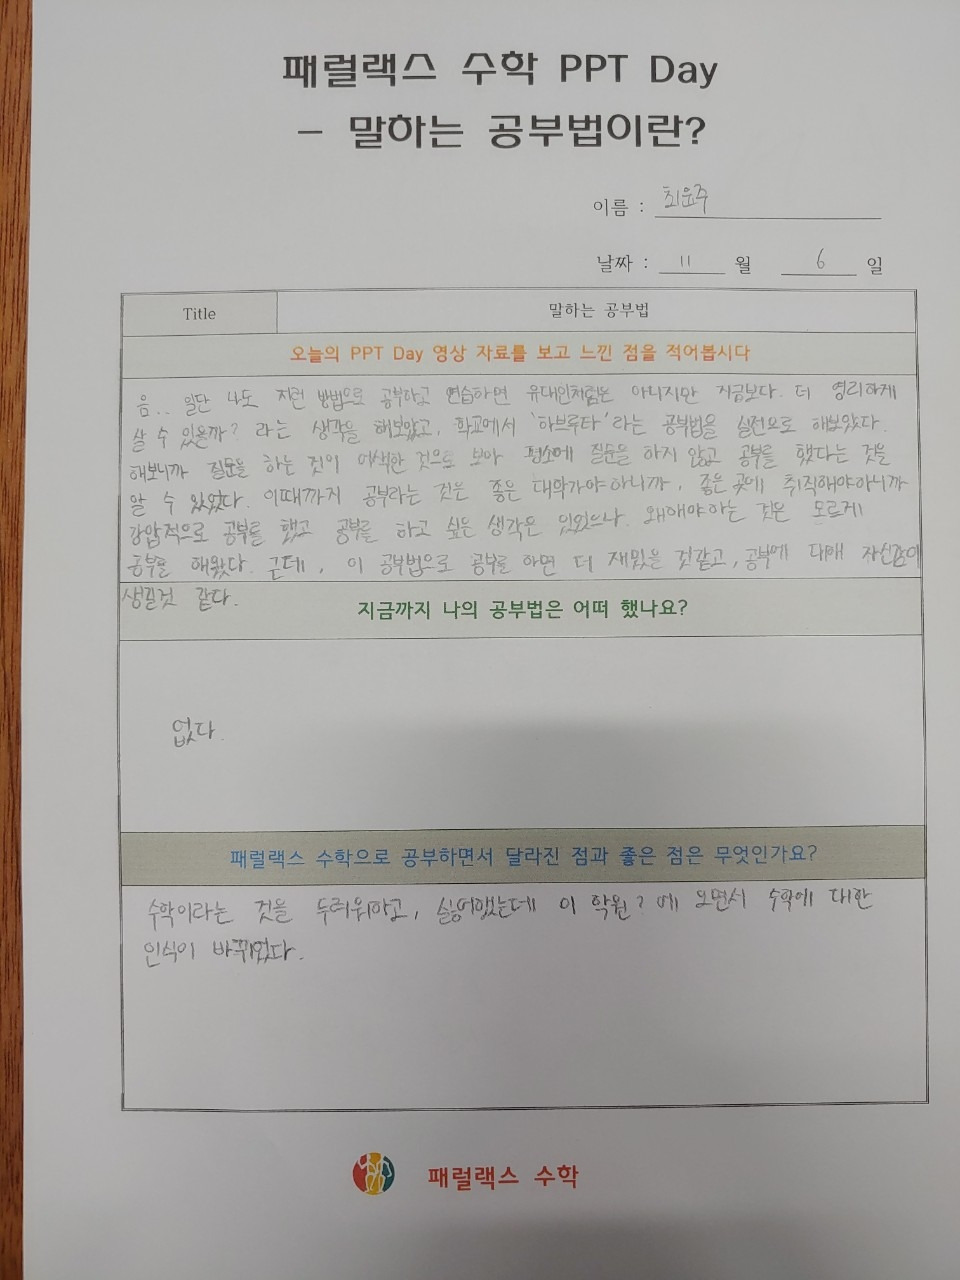 패럴랙스 수학 PPT Day
- 말하는 공부법이란?
이름 : 최윤주
날짜 : 11 월 6 일
Title 말하는 공부법
오늘의 PPT Day 영상 자료를 보고 느낀 점을 적어봅시다
음.. 일단 나도 저런 방법으로 공부하고 연습하면 유대인처럼은 아니지만 지금보다. 더 영리하게
살 수 있을까? 라는 생각을 해보았고, 학교에서 '하브루타'라는 공부법을 실전으로 해보았다.
해보니까 질문을 하는 것이 어색한 것으로 보아 평소에 질문을 하지 않고 공부를 했다는 것을
알 수 있었다. 이때까지 공부라는 것은 좋은 대학가야하니까, 좋은 곳에 취직해야하니까
강압적으로 공부를 했고 공부를 하고 싶은 생각은 있었으나 왜해야하는 것은 모르게
공부를 해왔다. 근데, 이 공부법으로 공부를 하면 더 재밌을 것같고, 공부에 대해 자신감이
생길것 같다.
지금까지 나의 공부법은 어떠 했나요?
없다.
패럴랙스 수학으로 공부하면서 달라진 점과 좋은 점은 무엇인가요?
수학이라는 것을 두려워하고, 싫어했는데 이 학원?에 오면서 수학에 대한
인식이 바뀌었다.
패럴랙스 수학